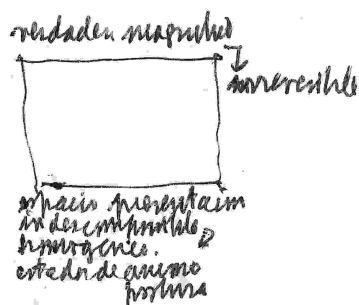 verdadera magnitud
irreversible
espacio presentacion
indescomponible
homogenea.
estado de animo
postura